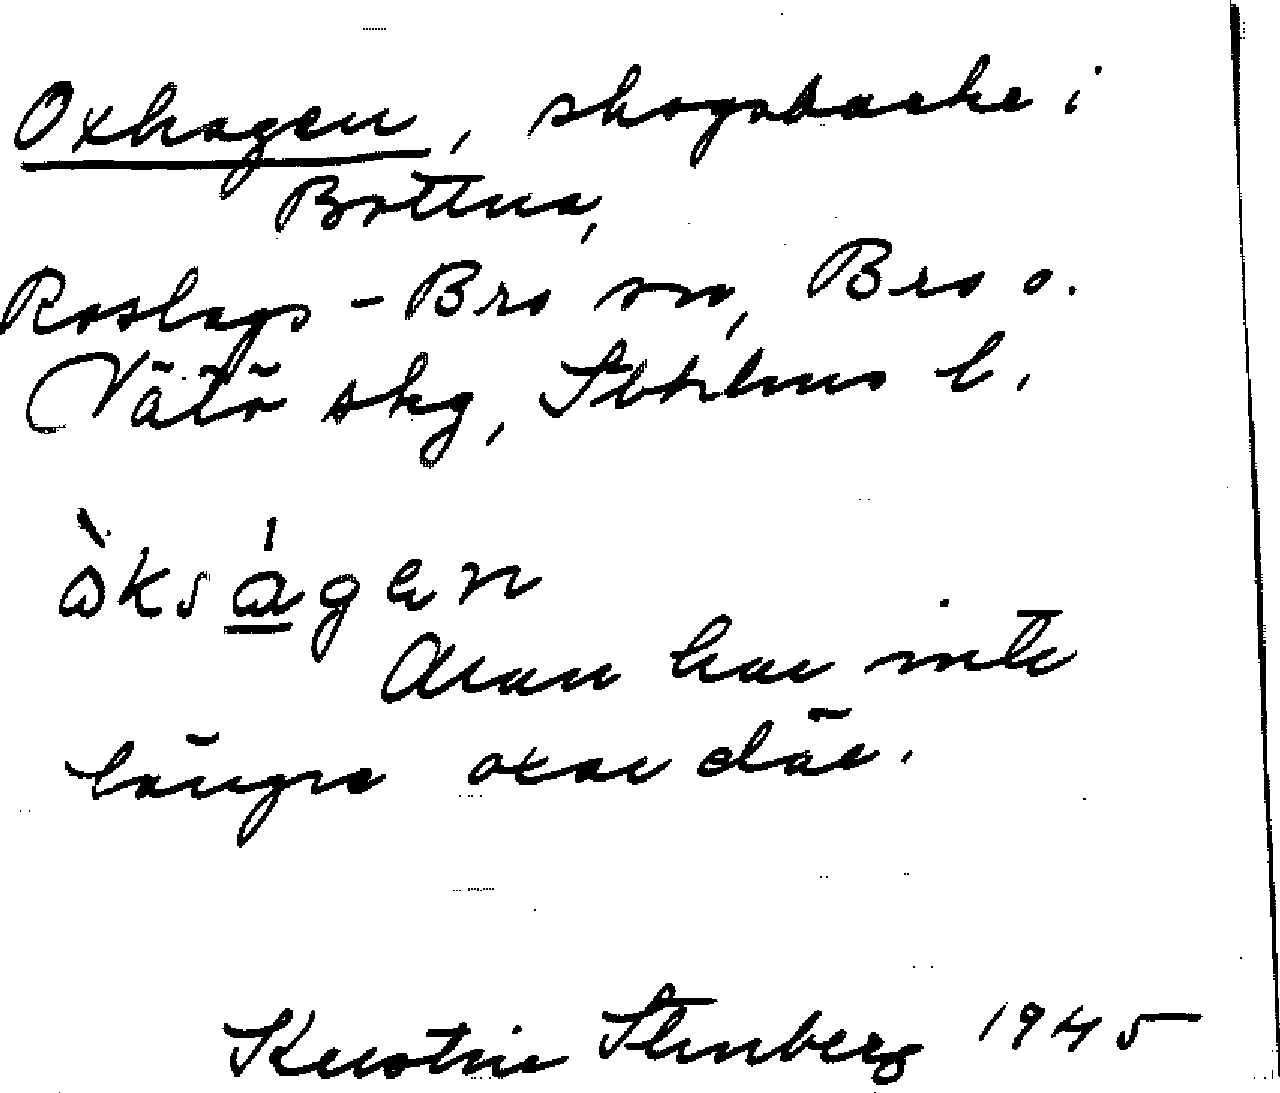 Oxhagen, skogsbacke i
Bottna,
Roslags-Bro sn, Bro o.
Vätö skg, Sthlms l.
òkságen
Man har inte
längre oxar där.
Kerstin Stenberg 1945